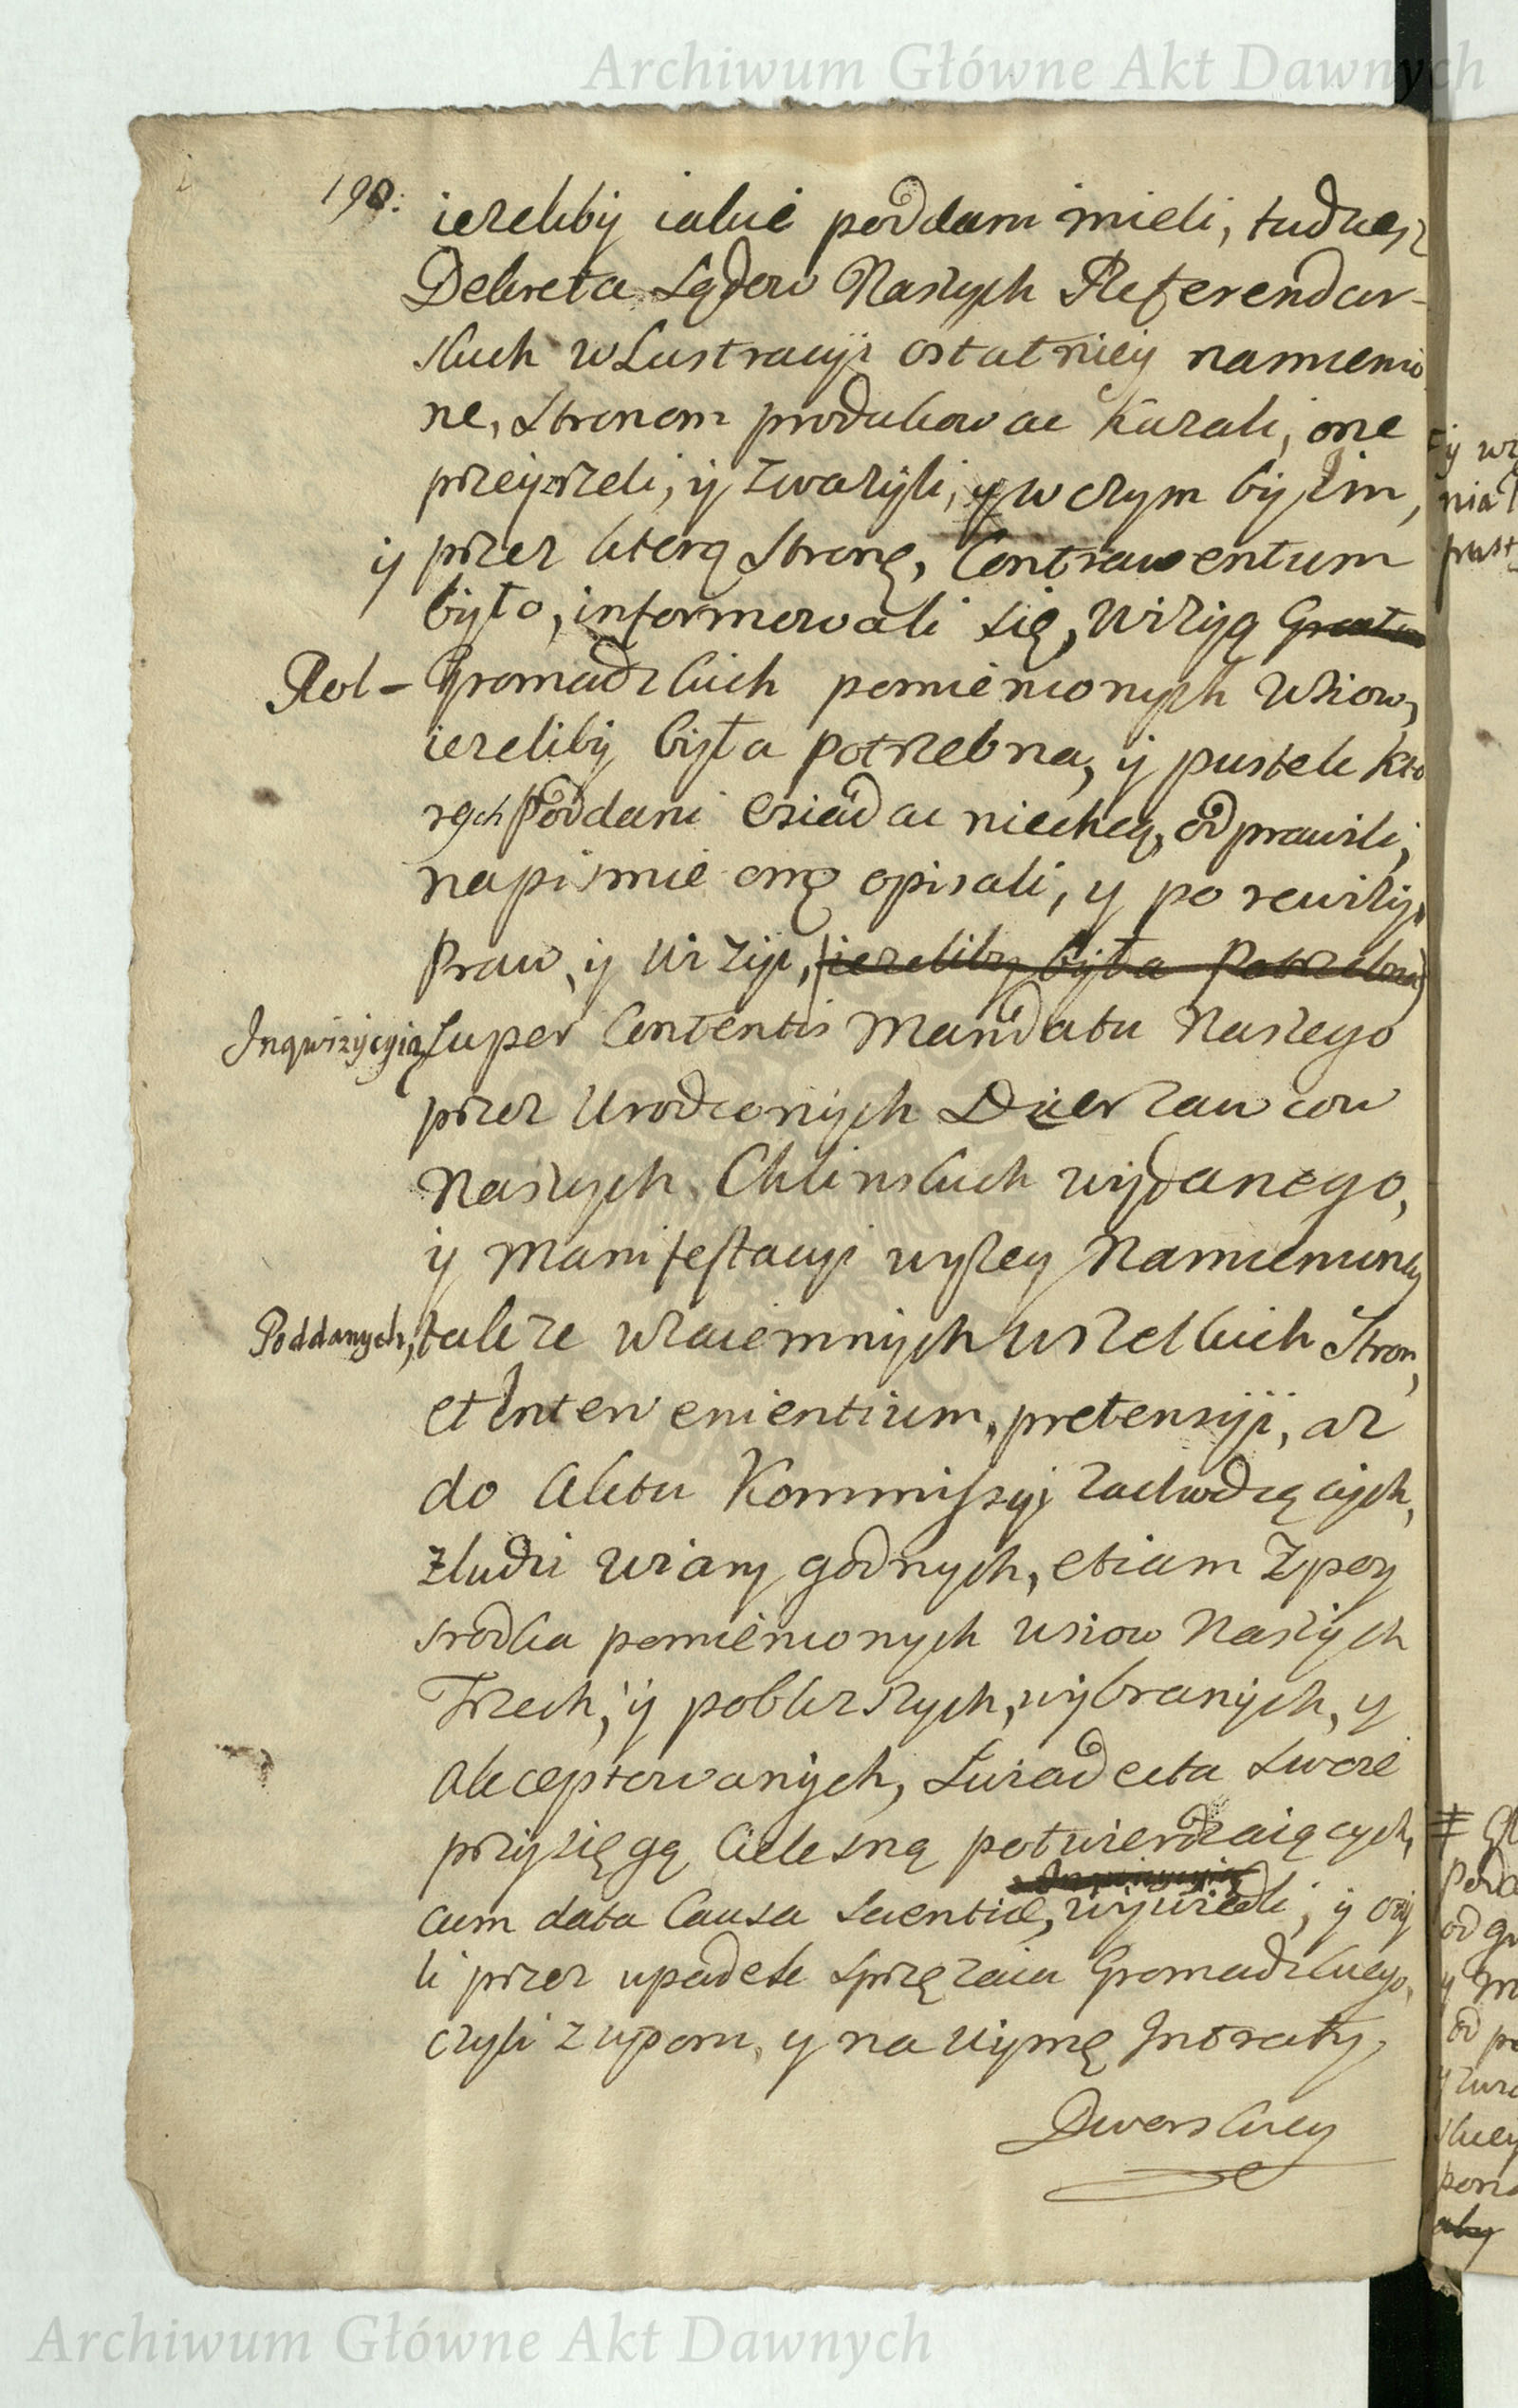 Archiwum Główne Akt Dawnych
190:
ieżeliby iakie poddani mieli, tudziesz
Dekreta Sądow Naszych Referendar-
skich w Lustracyi ostatniey namienio
ne, Stronom produkować kazali, one
przeyrzeli, y zważyli, y w czym by im,
y przez ktorą Stronę, Contraventum
było, informowali się, Wizyą
Rol- Gromadzkich pomienionych Wsiow,
ieżeliby była potrzebna, y pustek kto
rych Poddani osiadać niechcą, odprawili,
napismie onę opisali, y po rewizyi
Praw, y Wizyi, (ieżeliby była Potrzebna)
Inqwizycyią super Contentis Mandatu Naszego
przez Urodzonych Dzierzawcow
Naszych Chlinskich wydanego,
y Manifestacyi wyżey Namienioney
Poddanych, także wzaiemnych wszelkich Stron,
et Intervenientium, pretensyi, aż
do Aktu Kommissyi zachodzących,
z ludzi wiary godnych, etiam z pory
srodka pomienionych wsiow Naszych
Trzech, y pobliższych, wybranych, y
akceptowanych, Swiadecta swoie
przysięgą Cielesną potwierdzaiących,
cum data Causa Scientiæ, wywiedli, y czy
li przez upadek sprzężaiu Gromadzkiego,
czyli z uporu, y na uymę Intraty
Dworskiey
Archiwum Główne Akt Dawnych